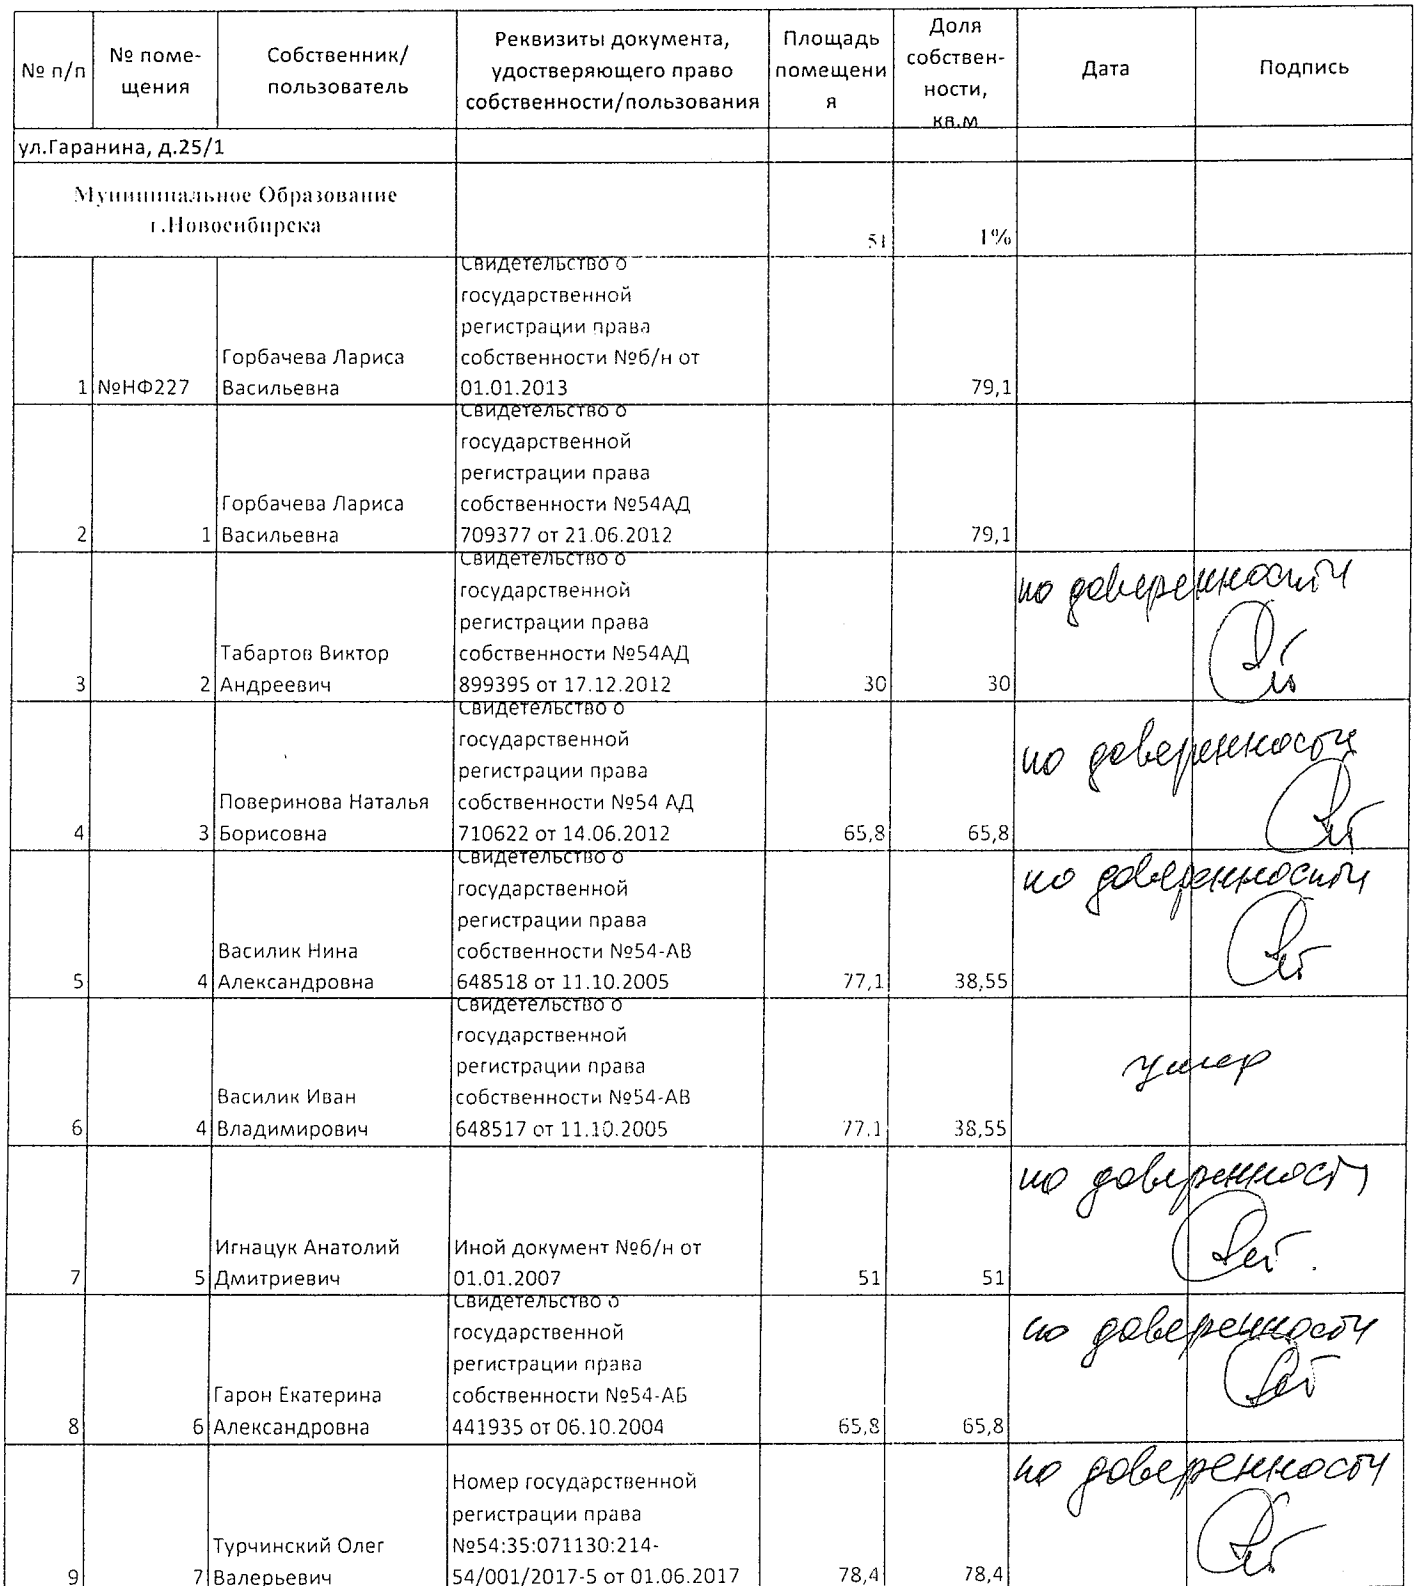 № п/п
№ поме-
щения
Собственник/
пользователь
Реквизиты документа,
удостверяющего право
собственности/пользования
Площадь
помещени
я
Доля
собствен-
ности,
кв.м
Дата
Подпись
ул.Гаранина, д.25/1
Муниципальное Образование
г.Новосибирска
51
1%
1
№НФ227
Горбачева Лариса
Васильевна
Свидетельство о
государственной
регистрации права
собственности №б/н от
01.01.2013
79,1
2
1
Горбачева Лариса
Васильевна
Свидетельство о
государственной
регистрации права
собственности №54АД
709377 от 21.06.2012
79,1
3
2
Табартов Виктор
Андреевич
Свидетельство о
государственной
регистрации права
собственности №54АД
899395 от 17.12.2012
30
30
по доверенности
4
3
Поверинова Наталья
Борисовна
Свидетельство о
государственной
регистрации права
собственности №54 АД
710622 от 14.06.2012
65,8
65,8
по доверенности
5
4
Василик Нина
Александровна
Свидетельство о
государственной
регистрации права
собственности №54-АВ
648518 от 11.10.2005
77,1
38,55
по доверенности
6
4
Василик Иван
Владимирович
Свидетельство о
государственной
регистрации права
собственности №54-АВ
648517 от 11.10.2005
77,1
38,55
умер
7
5
Игнацук Анатолий
Дмитриевич
Иной документ №б/н от
01.01.2007
51
51
по доверенности
8
6
Гарон Екатерина
Александровна
Свидетельство о
государственной
регистрации права
собственности №54-АБ
441935 от 06.10.2004
65,8
65,8
по доверенности
9
7
Турчинский Олег
Валерьевич
Номер государственной
регистрации права
№54:35:071130:214-
54/001/2017-5 от 01.06.2017
78,4
78,4
по доверенности